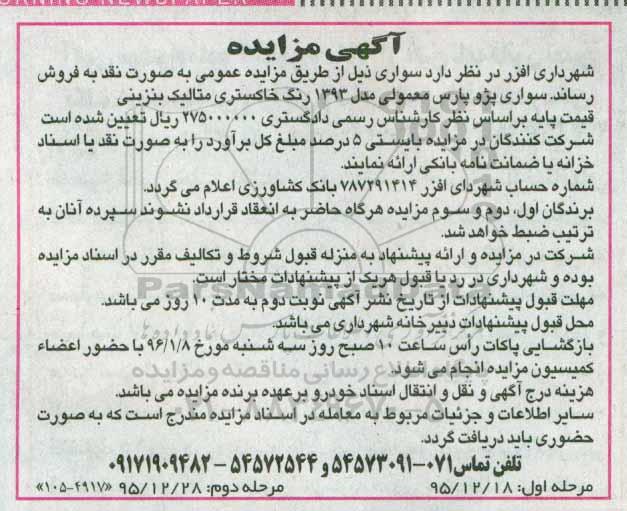 آگهی مزایده
شهرداری افزر در نظر دارد سواری ذیل از طریق مزایده عمومی به صورت نقد به فروش
رساند. سواری پژو پارس معمولی مدل ۱۳۹۳ رنگ خاکستری متالیک بنزینی
قیمت پایه براساس نظر کارشناس رسمی دادگستری ۲۷۵۰۰۰۰۰۰ ریال تعیین شده است
شرکت کنندگان در مزایده بایستی ۵ درصد مبلغ کل برآورد را به صورت نقد یا اسناد
خزانه یا ضمانت نامه بانکی ارائه نمایند.
شماره حساب شهردای افزر ۷۸۷۲۹۱۳۱۴ بانک کشاورزی اعلام می گردد.
برندگان اول، دوم و سوم مزایده هرگاه حاضر به انعقاد قرارداد نشوند سپرده آنان به
ترتیب ضبط خواهد شد.
شرکت در مزایده و ارائه پیشنهاد به منزله قبول شروط و تکالیف مقرر در اسناد مزایده
بوده و شهرداری در رد یا قبول هریک از پیشنهادات مختار است.
مهلت قبول پیشنهادات از تاریخ نشر آگهی نوبت دوم به مدت ۱۰ روز می باشد.
محل قبول پیشنهادات دبیرخانه شهرداری می باشد.
بازگشایی پاکات رأس ساعت ۱۰ صبح روز سه شنبه مورخ ۹۶/۱/۸ با حضور اعضاء
کمیسیون مزایده انجام می شود.
هزینه درج آگهی و نقل و انتقال اسناد خودرو بر عهده برنده مزایده می باشد.
سایر اطلاعات و جزئیات مربوط به معامله در اسناد مزایده مندرج است که به صورت
حضوری باید دریافت گردد.
تلفن تماس ۰۷۱-۵۴۵۷۳۰۹۱ و ۵۴۵۷۲۵۴۴ - ۰۹۱۷۱۹۰۹۴۸۲
مرحله اول: ۹۵/۱۲/۱۸ مرحله دوم: ۹۵/۱۲/۲۸ «۱۰۵-۴۹۱۷»
ParsNamadData